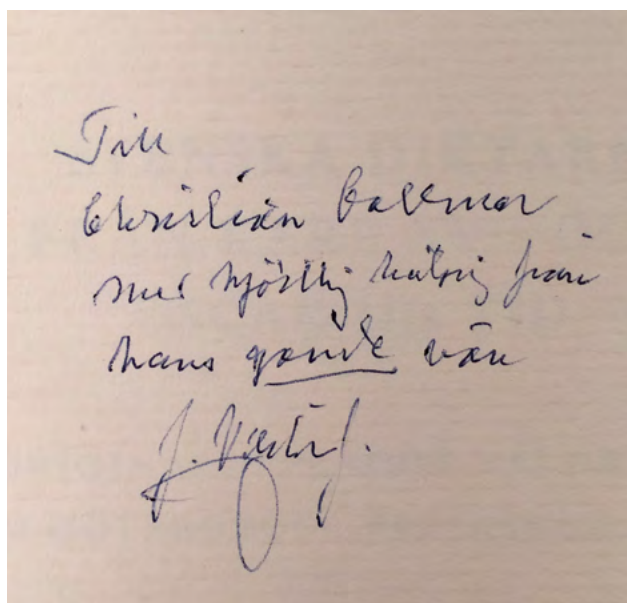 Till
Christian Callmer
med hjärtlig hälsning från
hans gamle vän
J.